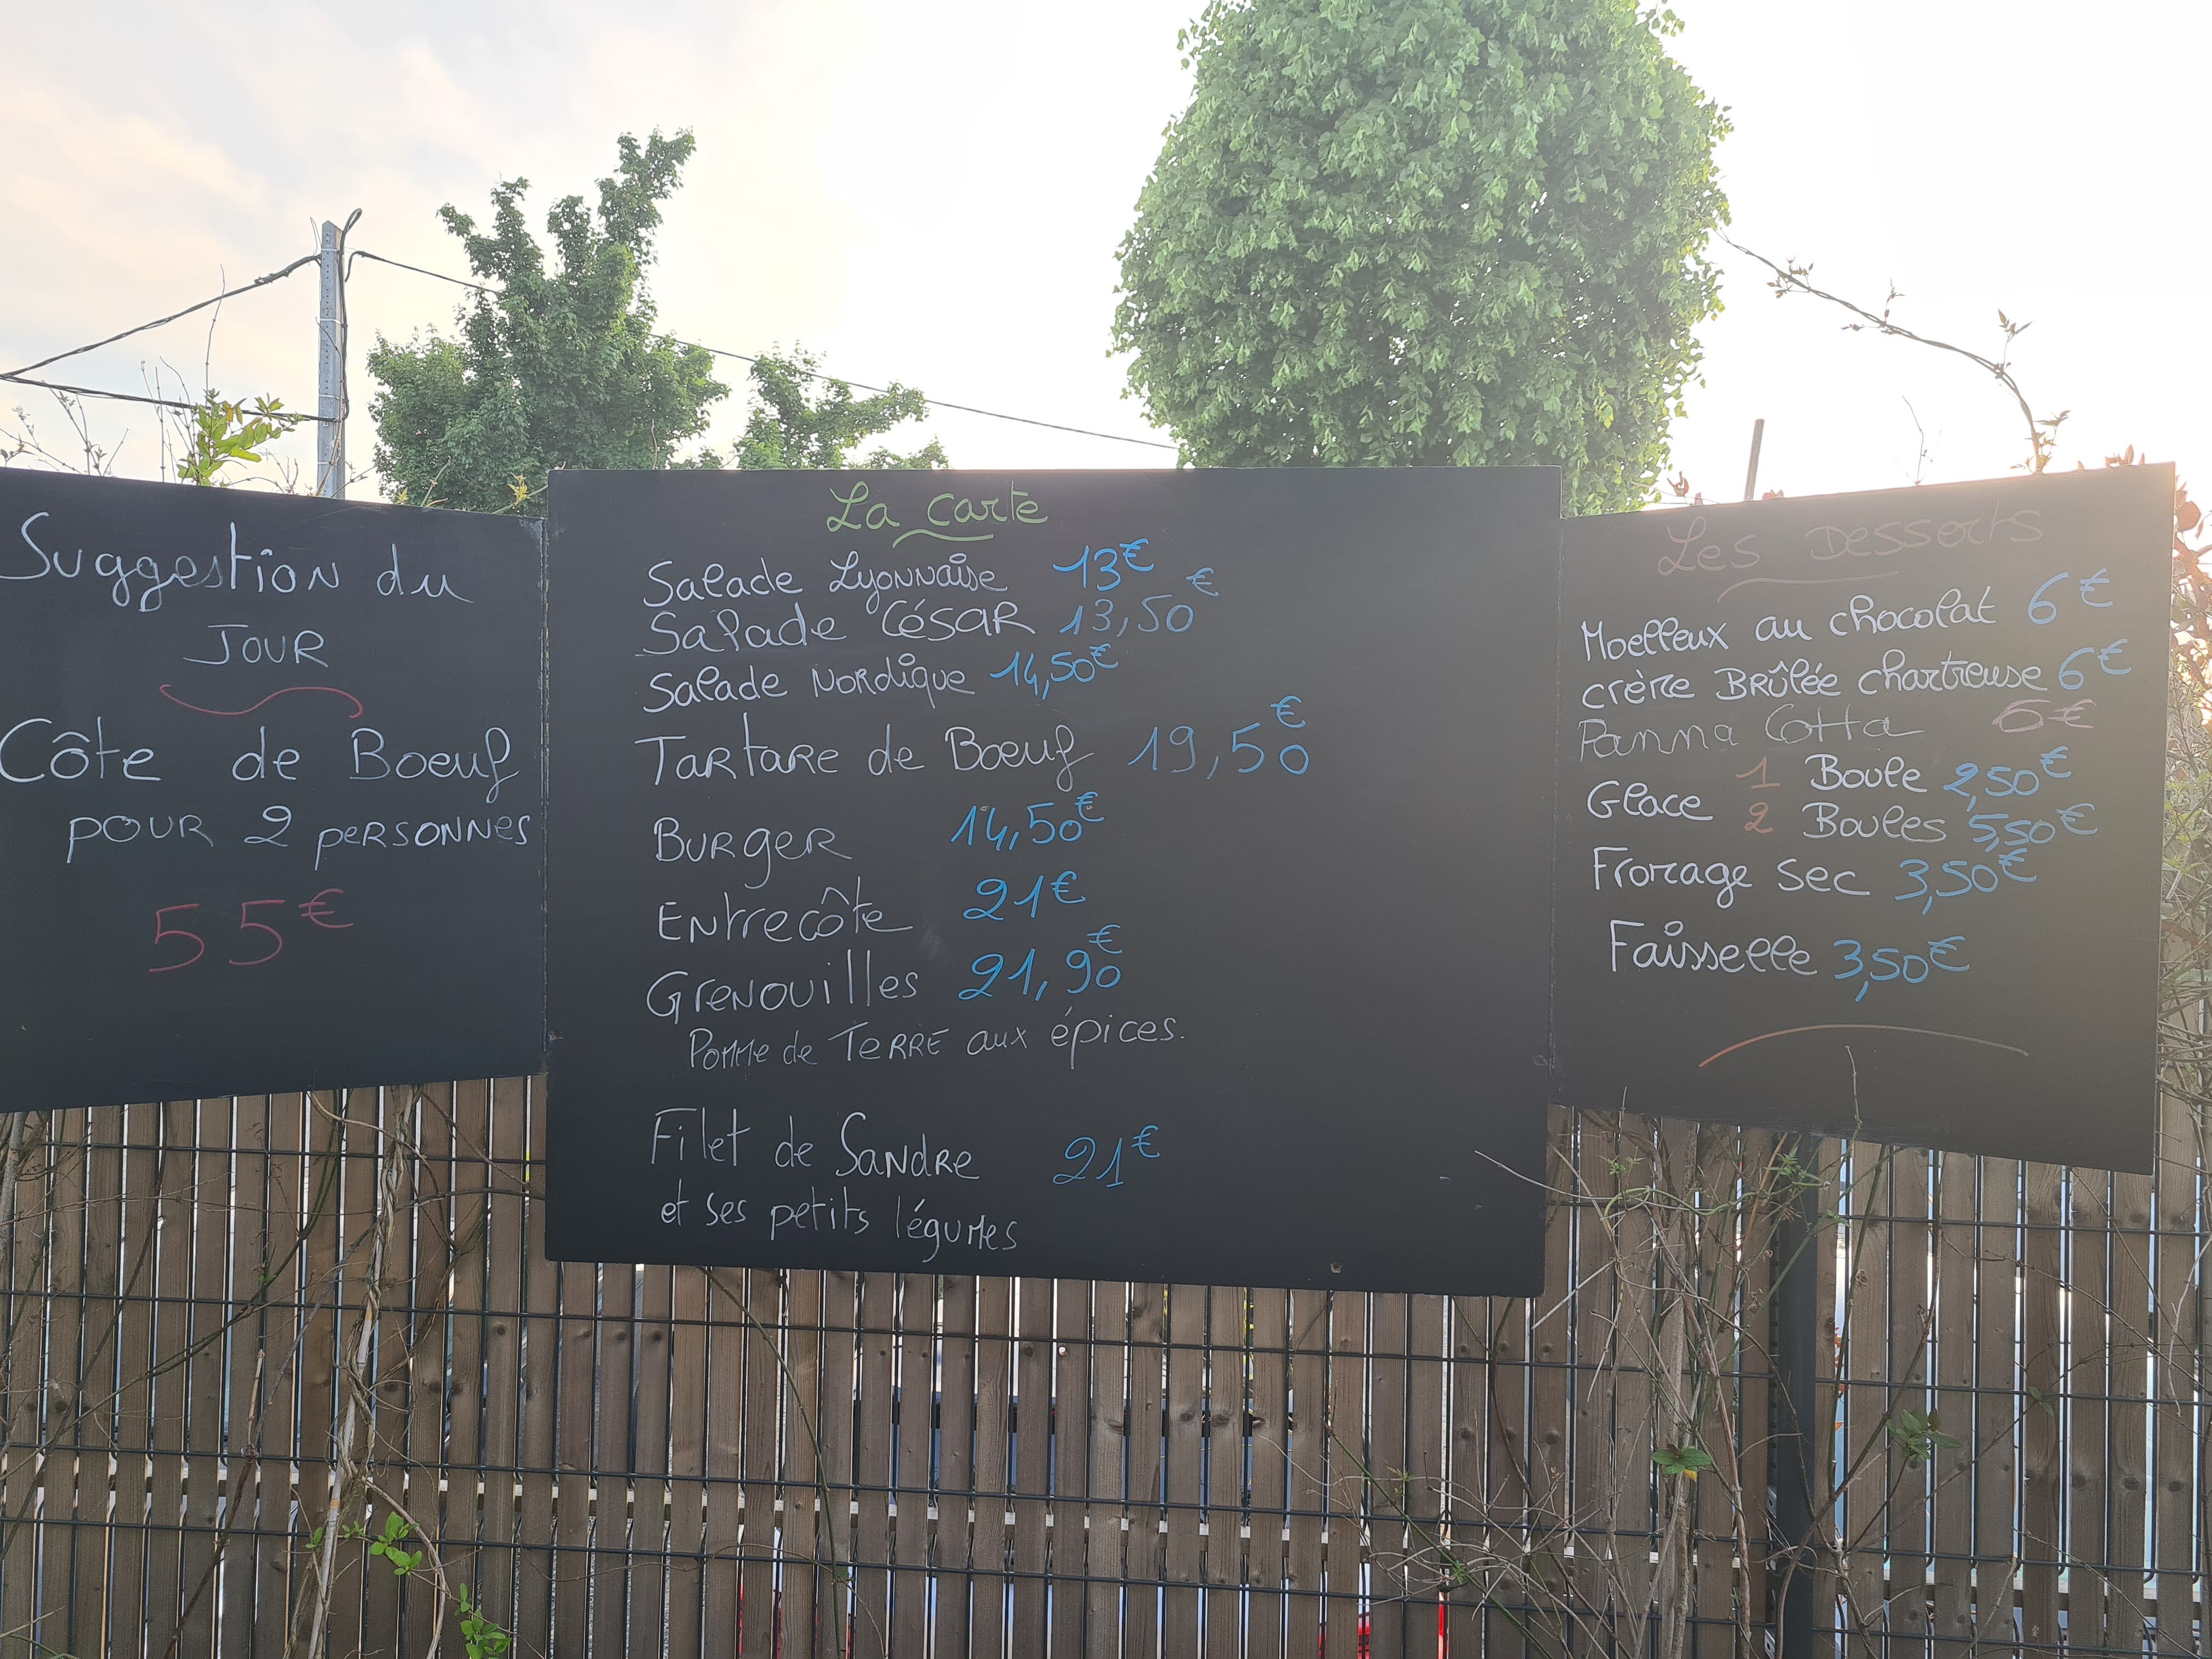 Suggestion du
JOUR
Côte de Boeuf
pour 2 personnes
55€
La carte
Salade Lyonnaise 13€
Salade César 13,50€
Salade Nordique 14,50€
Tartare de Boeuf 19,50€
Burger 14,50€
Entrecôte 21€
Grenouilles 21,90€
Pomme de Terre aux épices.
Filet de Sandre 21€
et ses petits légumes
Les Desserts
Moelleux au chocolat 6€
crème Brûlée chartreuse 6€
Panna Cotta 6€
Glace 1 Boule 2,50€
2 Boules 5,50€
Fromage sec 3,50€
Faisselle 3,50€